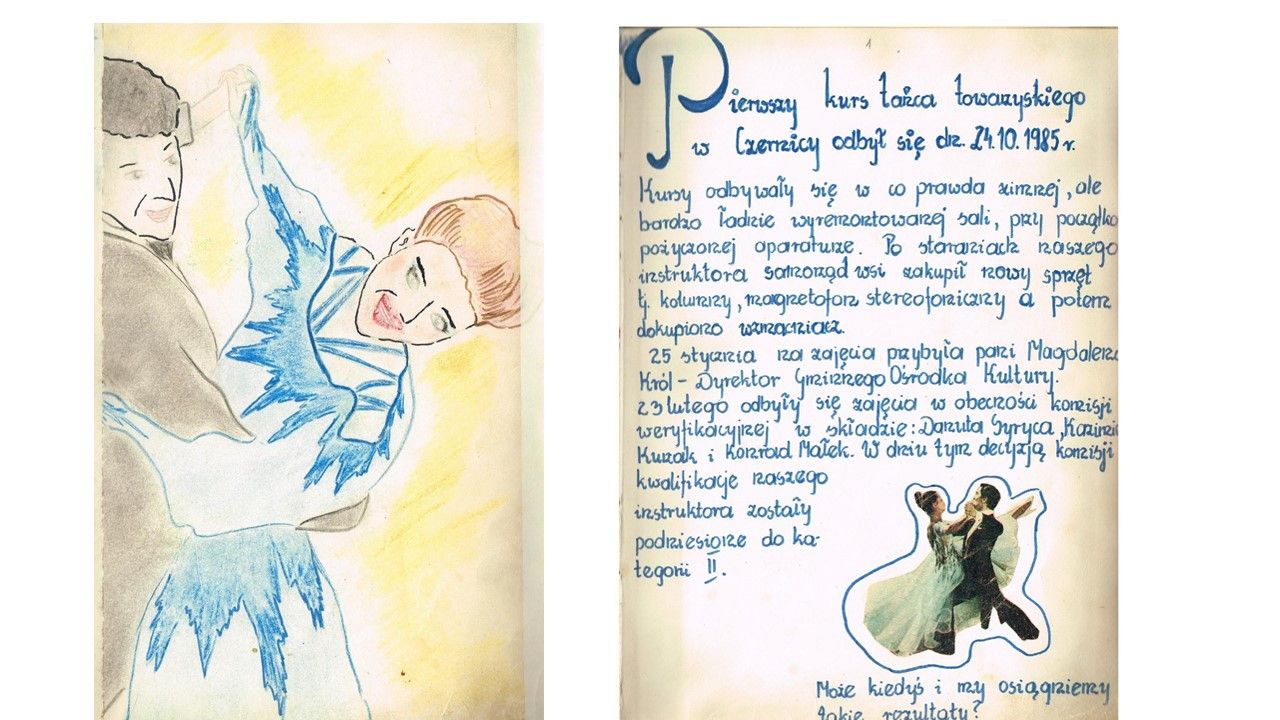 1
Pierwszy kurs tańca towarzyskiego
w Czernicy odbył się dn. 24.10.1985 r.
Kursy odbywały się w co prawda zimnej, ale
bardzo ładnie wyremontowanej sali, przy początko
pożyczonej aparaturze. Po staraniach naszego
instruktora samorząd wsi zakupił nowy sprzęt
tj. kolumny, magnetofon stereofoniczny a potem
dokupiono wzmacniacz.
25 stycznia na zajęcia przybyła pani Magdalena
Król - Dyrektor Gminnego Ośrodka Kultury.
23 lutego odbyły się zajęcia w obecności komisji
weryfikacyjnej w składzie: Danuta Gyryca, Kazimie
Kuzak i Konrad Małek. W dniu tym decyzją komisji
kwalifikacje naszego
instruktora zostały
podniesione do ka-
tegorii II.
Może kiedyś i my osiągniemy
takie rezultaty?